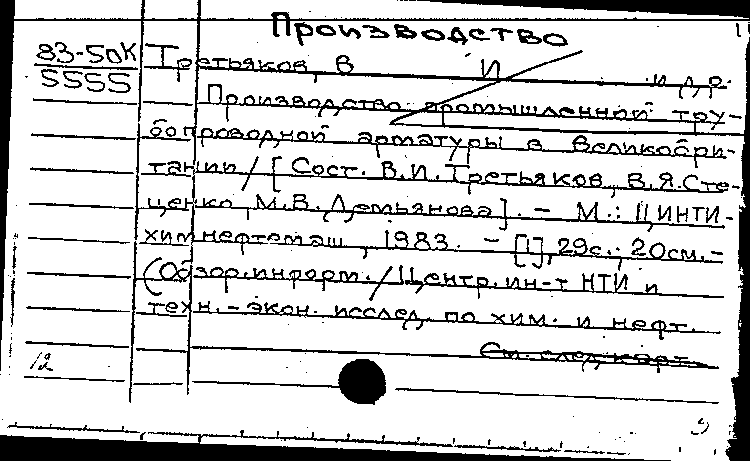 Производство
83-50К
5555
Третьяков, В И и др.
Производство промышленной тру-
бопроводной арматуры в Великобри-
тании / [Сост. В.И. Третьяков, В.Я. Сте-
ценко, М.В. Демьянова]. - М.: ЦИНТИ-
химнефтемаш, 1983. - [1], 29с.; 20см. -
(Обзор. информ. / Центр. ин-т НТИ и
техн.-экон. исслед. по хим. и нефт.
См. след. карт.
12